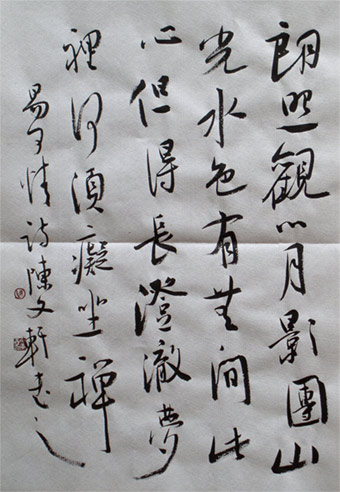 朗照觀心月影團山
光水色有無間此
心但得長澄澈夢
裡何須癡坐禪
易情詩陳文軒書之